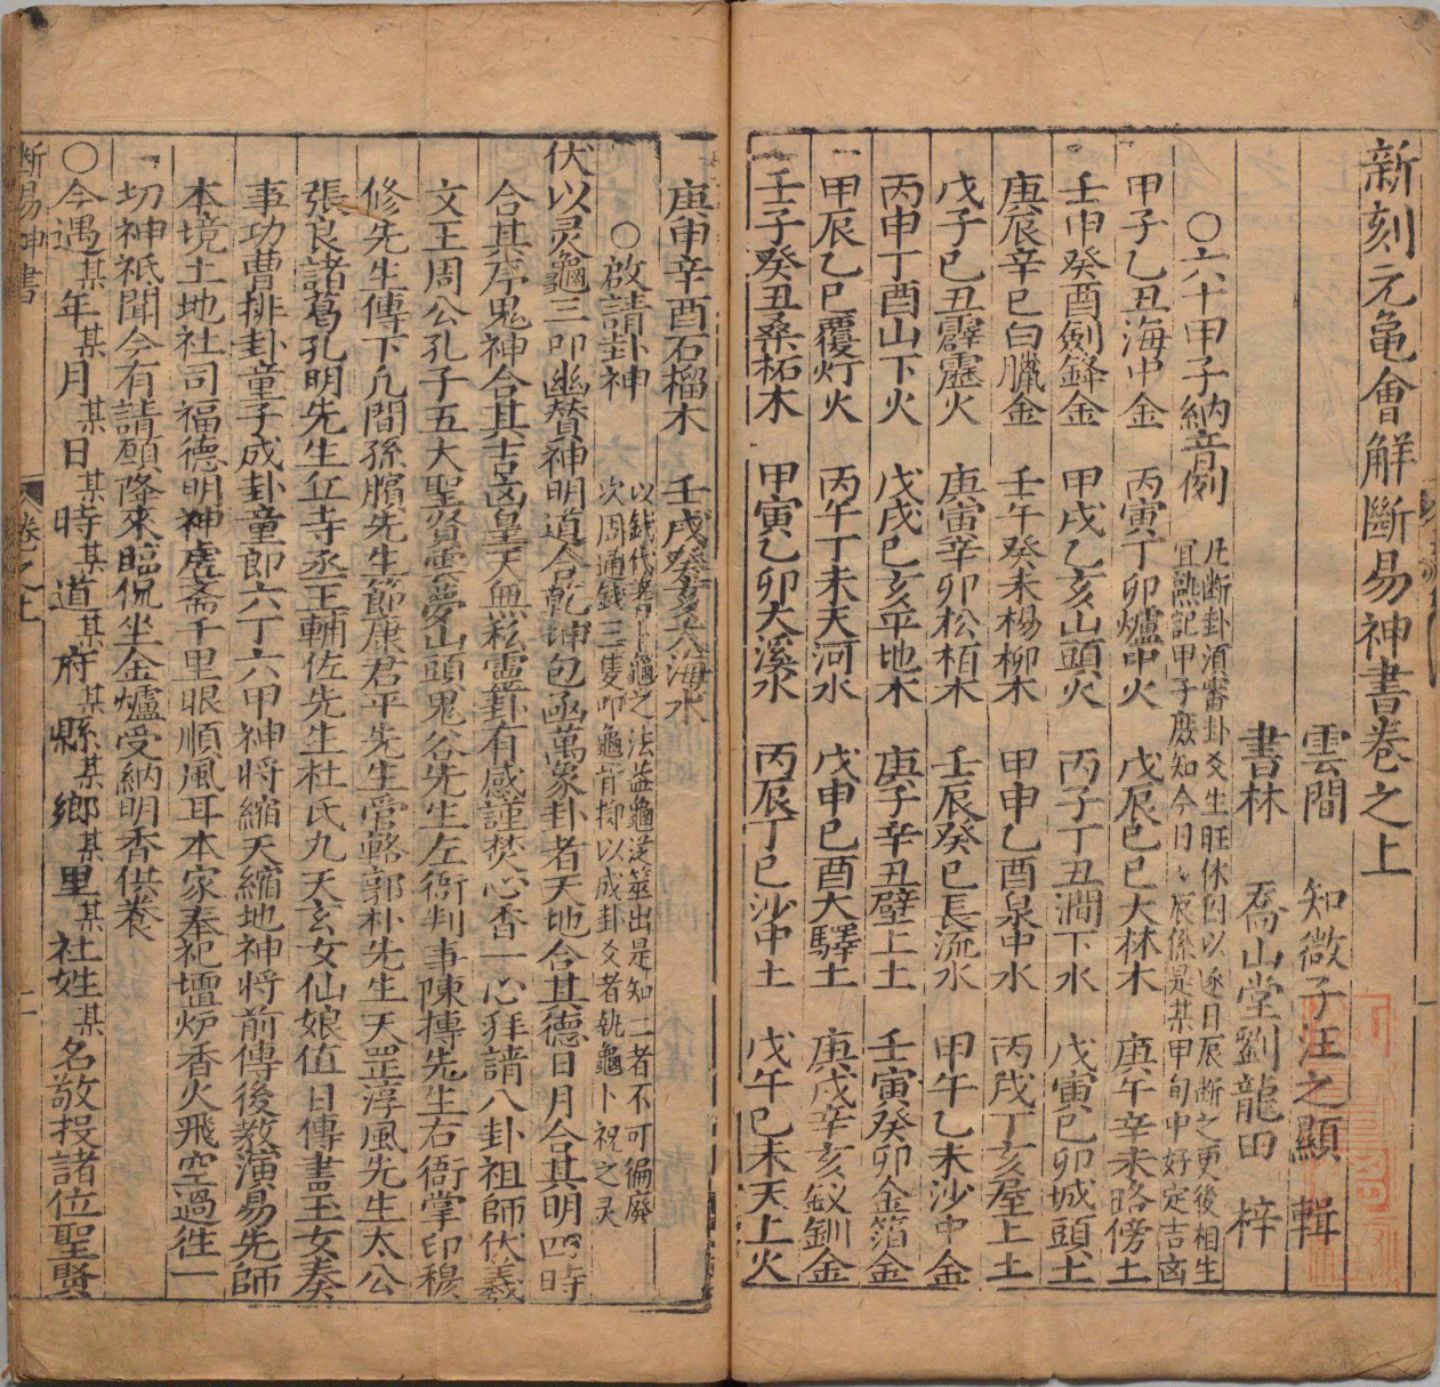 新刻元龜會解斷易神書卷之上
雲間 知微子汪之顯 輯
書林 喬山堂劉龍田 梓
○六十甲子納音例 凡断卦須審卦爻生旺休囚以逐日辰断之更後相生
宜熟記甲子庶知今日〻辰係是某甲旬中好定吉凶
甲子乙丑海中金 丙寅丁卯爐中火 戊辰己巳大林木 庚午辛未路傍土
壬申癸酉劍鋒金 甲戌乙亥山頭火 丙子丁丑澗下水 戊寅己卯城頭土
庚辰辛巳白臘金 壬午癸未楊柳木 甲申乙酉泉中水 丙戌丁亥屋上土
戊子己丑霹靂火 庚寅辛卯松栢木 壬辰癸巳長流水 甲午乙未沙中金
丙申丁酉山下火 戊戌己亥平地木 庚子辛丑壁上土 壬寅癸卯金箔金
甲辰乙巳覆灯火 丙午丁未天河水 戊申己酉大驛土 庚戌辛亥釵釧金
壬子癸丑桑柘木 甲寅乙卯大溪水 丙辰丁巳沙中土 戊午己未天上火
庚申辛酉石榴木 壬戌癸亥大海水
○啟請卦神 以錢代蓍卜龜之法盖龜逆筮出是知二者不可偏廢
次周通錢三隻叩龜背抑以成卦爻者執龜卜祝之灵
伏以灵龜三叩幽賛神明道合乾坤包函萬象卦者天地合其德日月合其明四時
合其序鬼神合其吉凶皇天無私靈卦有感謹焚心香一心拜請八卦祖師伏羲
文王周公孔子五大聖贤雲夢山頭鬼谷先生左衙判事陳摶先生右衙掌印穆
修先生傳下凡間孫臏先生節康君平先生管輅郭朴先生天罡淳風先生太公
張良諸葛孔明先生丘寺丞王輔佐先生杜氏九天玄女仙娘值日傳書玉女奏
事功曹排卦童子成卦童郎六丁六甲神將縮天縮地神將前傳後教演易先師
本境土地社司福德明神虔斋千里眼順風耳本家奉祀壇炉香火飛空過徃一
切神祇聞今有請願降來臨侃坐金爐受納明香供養
○今遇某年某月某日某時某道某府某縣某鄉某里某社姓某名敬投諸位聖賢
断易神書 卷之上 二